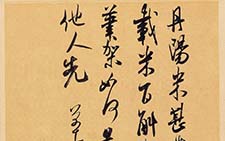 丹陽米甚
載米百斛
筆架如何
他人先